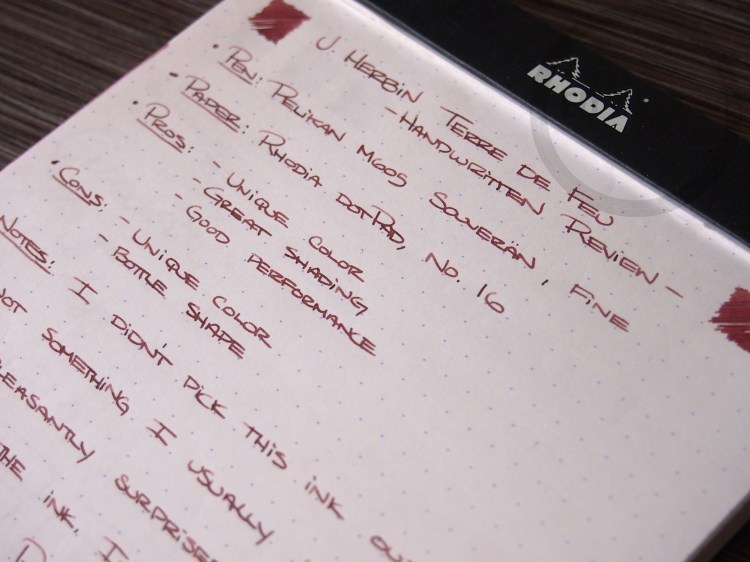 RHODIA
J. HERBIN TERRE DE FEU
- HANDWRITTEN REVIEW -
• PEN: PELIKAN M605 SOUVERÄN, FINE
• PAPER: RHODIA DOTPAD, NO. 16
• PROS: - UNIQUE COLOR
- GREAT SHADING
- GOOD PERFORMANCE
• CONS: - UNIQUE COLOR
- BOTTLE SHAPE
NOTES: I DIDN'T PICK THIS INK
NOT SOMETHING I USUALLY
PLEASANTLY SURPRISED
THE INK. I